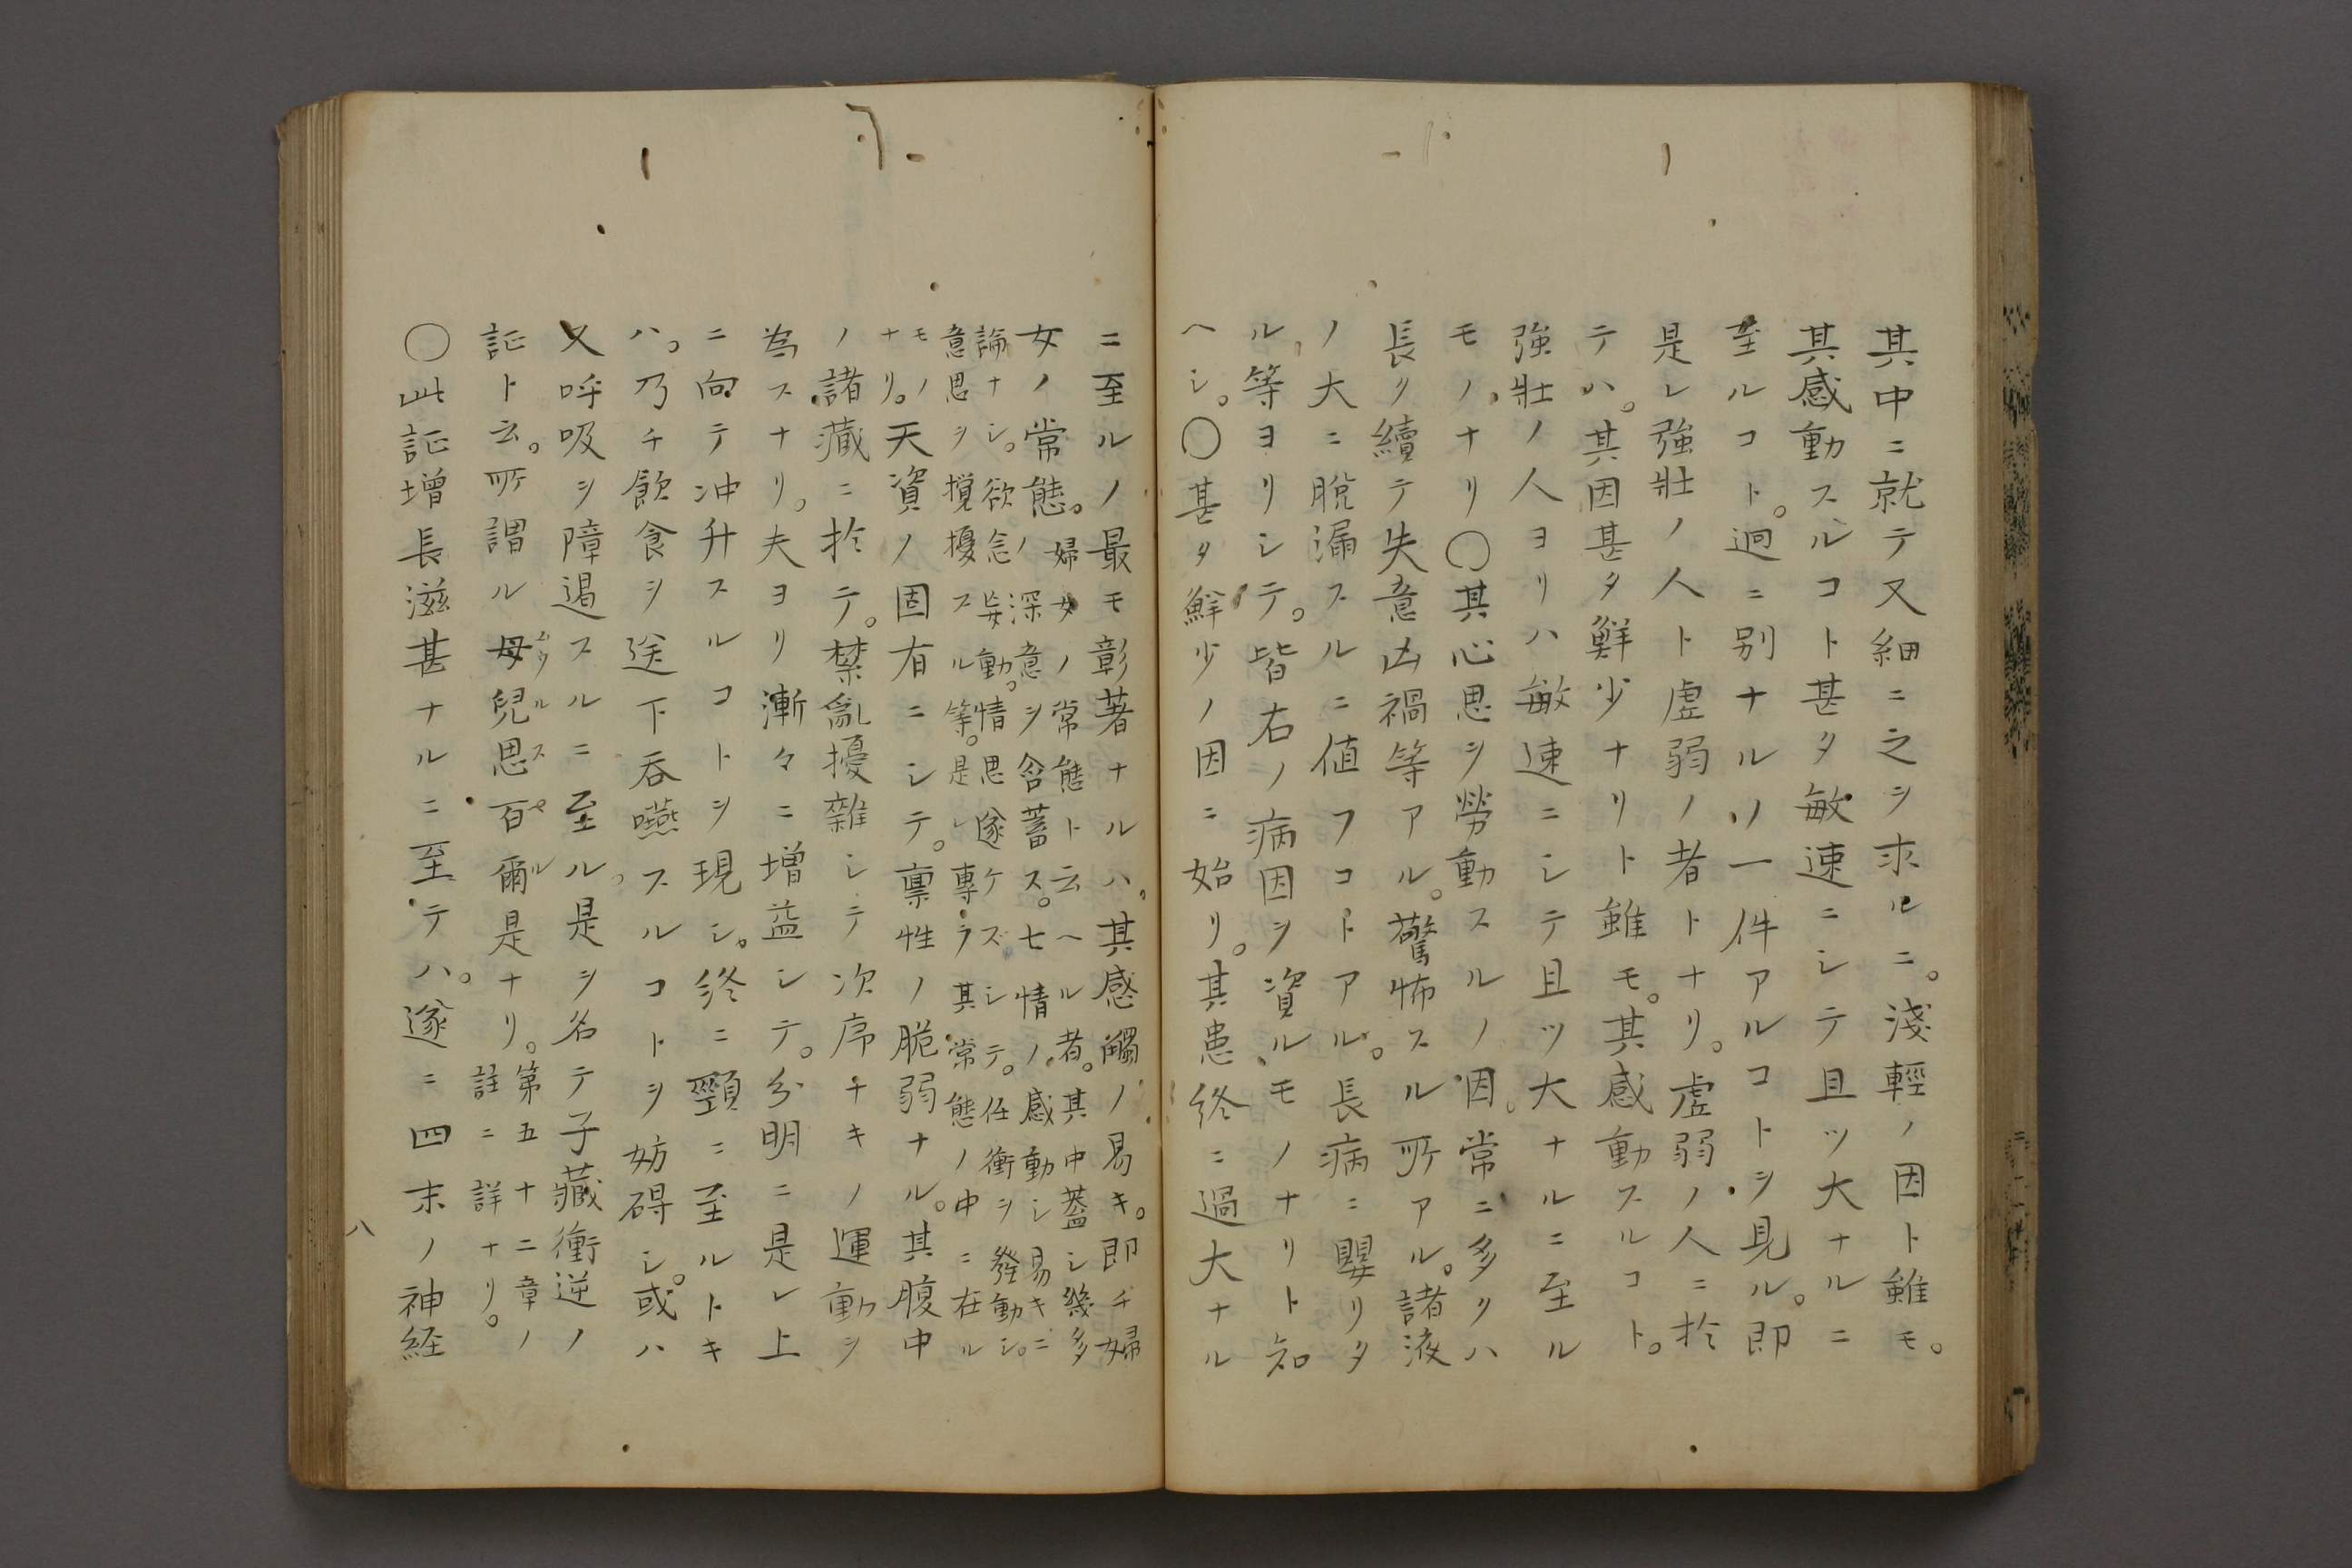 其中ニ就テ又細ニ之ヲ求ルニ。淺輕ノ因ト雖モ。
其感動スルコト甚タ敏速ニシテ且ツ大ナルニ
至ルコト。迥ニ別ナルソ一件アルコトヲ見ル。即
是レ強壯ノ人ト虚弱ノ者トナリ。虚弱ノ人ニ於
テハ。其因甚タ鮮少ナリト雖モ。其感動スルコト。
強壯ノ人ヨリハ敏速ニシテ且ツ大ナルニ至ル
モノナリ○其心思ヲ勞動スルノ因。常ニ多リハ
長リ續テ失意凶禍等アル。驚怖スル所アル。諸液
ノ大ニ脱漏スルニ値フコトアル。長病ニ嬰リタ
ル等ヨリシテ。皆右ノ病因ヲ資ルモノナリト知
ヘシ。○甚タ鮮少ノ因ニ始リ。其患終ニ過大ナル
ニ至ルノ最モ彰著ナルハ。其感觸ノ易キ。即チ婦
女ノ常態。
婦女ノ常態ト云ヘル者。其中蓋シ幾多
ノ深意ヲ含蓄ス。七情ノ感動シ易キニ
論ナシ。欲念妄動。情思遂ケズシテ。任衝ヲ發動シ。
意思ヲ攪擾スル等。是レ專ラ其常態ノ中ニ在ル
モノ
ナリ。
天資ノ固有ニシテ。禀性ノ脆弱ナル。其腹中
ノ諸藏ニ於テ。禁亂擾雜シテ次序ナキノ運動ヲ
為スナリ。夫ヨリ漸々ニ増益シテ。分明ニ是レ上
ニ向テ冲升スルコトヲ現シ。終ニ頸ニ至ルトキ
ハ。乃チ飲食ヲ送下呑嚥スルコトヲ妨碍シ。或ハ
又呼吸ヲ障遏スルニ至ル。是ヲ名テ子藏衝逆ノ
証ト云。所謂ル母兒思百爾是ナリ。
ムウルスペル
第五十二章ノ
註ニ詳ナリ。
○此証增長滋甚ナルニ至テハ。遂ニ四末ノ神経
八